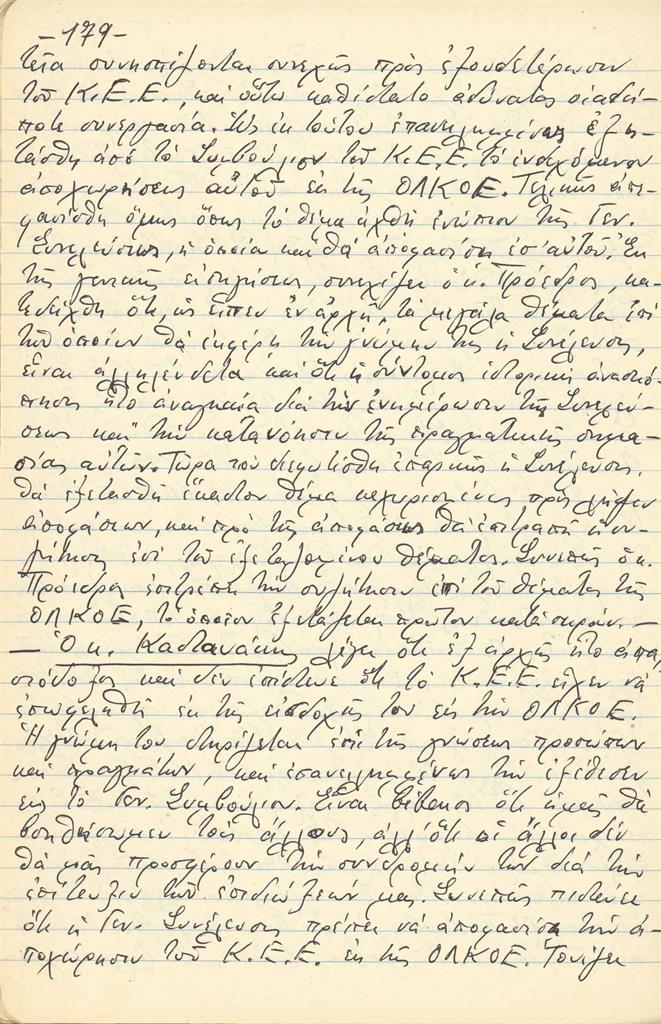 -179-
τεῖα συνησπίζονται συνεχῶς πρὸς ἐξουδετέρωσιν
τοῦ Κ.Ε.Ε., καὶ οὕτω καθίστατο ἀδύνατος οἱαδή-
ποτε συνεργασία. Ὡς ἐκ τούτου ἐπανειλημμένως ἐξη-
τάσθη ἀπὸ τὸ Συμβούλιον τοῦ Κ.Ε.Ε. τὸ ἐνδεχόμενον
ἀποχωρήσεως αὐτοῦ ἐκ τῆς ΟΛΚΟΕ. Τελικῶς ἀπε-
φασίσθη ὅμως ὅπως τὸ θέμα ἀχθῇ ἐνώπιον τῆς Γεν.
Συνελεύσεως, ἡ ὁποία καὶ θὰ ἀποφασίση ἐπ' αὐτοῦ. Ἐκ
τῆς γενικῆς εἰσηγήσεως, συνεχίζει ὁ κ. Πρόεδρος, κα-
τεδείχθη ὅτι, ὡς εἶπεν ἐν ἀρχῇ, τὰ μεγάλα θέματα ἐπὶ
τῶν ὁποίων θὰ ἐκφέρη τὴν γνώμην της ἡ Συνέλευσις,
εἶναι ἀλληλένδετα καὶ ὅτι ἡ σύντομος ἱστορικὴ ἀνασκό-
πησις ἦτο ἀναγκαία διὰ τὴν ἐνημέρωσιν τῆς Συνελεύ-
σεως καὶ τὴν κατανόησιν τῆς πραγματικῆς σημα-
σίας αὐτῶν. Τώρα ποὺ διεφωτίσθη ἐπαρκῶς ἡ Συνέλευσις,
θὰ ἐξετασθῇ ἕκαστον θέμα κεχωρισμένως πρὸς λῆψιν
ἀποφάσεων, καὶ πρὸ τῆς ἀποφάσεως θὰ ἐπιτραπῇ ἡ συ-
ζήτησις ἐπὶ τοῦ ἐξεταζομένου θέματος. Συνεπῶς ὁ κ.
Πρόεδρος ἐπιτρέπει τὴν συζήτησιν ἐπὶ τοῦ θέματος τῆς
ΟΛΚΟΕ, τὸ ὁποῖον ἐξετάζεται πρῶτον κατὰ σειράν. -
- Ὁ κ. Καστανάκης λέγει ὅτι ἐξ ἀρχῆς ἦτο ἀπαι-
σιόδοξος καὶ δὲν ἐπίστευε ὅτι τὸ Κ.Ε.Ε. εἶχεν νὰ
ἐπωφεληθῇ ἐκ τῆς εἰσδοχῆς του εἰς τὴν ΟΛΚΟΕ.
Ἡ γνώμη του στηρίζεται ἐπὶ τῆς γνώσεως προσώπων
καὶ πραγμάτων, καὶ ἐπανειλημμένως τὴν ἐξέθεσεν
εἰς τὸ Γεν. Συμβούλιον. Εἶναι βέβαιος ὅτι ἡμεῖς θὰ
βοηθήσωμεν τοὺς ἄλλους, ἀλλ' ὅτι οἱ ἄλλοι δὲν
θὰ μᾶς προσφέρουν τὴν συνδρομήν των διὰ τὴν
ἐπίτευξιν τῶν ἐπιδιώξεών μας. Συνεπῶς πιστεύει
ὅτι ἡ Γεν. Συνέλευσις πρέπει νὰ ἀποφασίση τὴν ἀ-
ποχώρησιν τοῦ Κ.Ε.Ε. ἐκ τῆς ΟΛΚΟΕ. Τονίζει